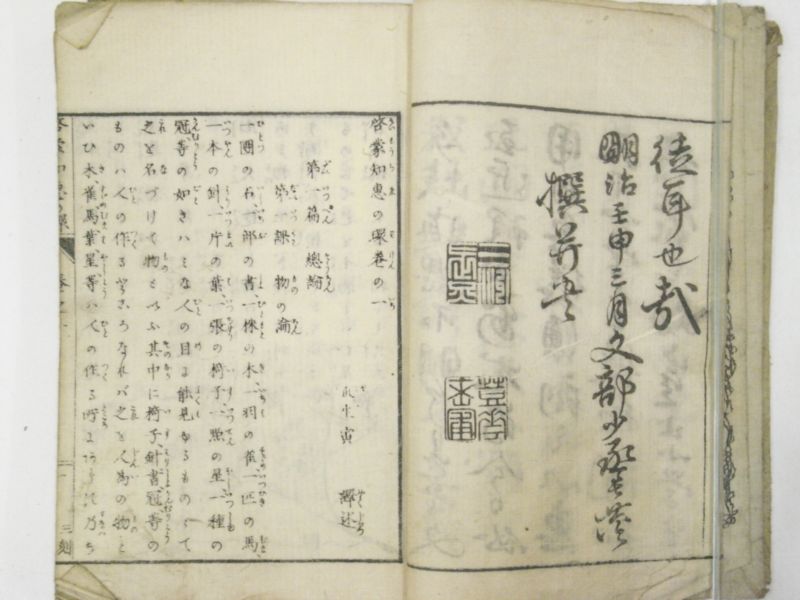 徒耳也哉
明治壬申三月文部少丞長炗
撰并書
啓蒙知惠の環巻の一
瓜生寅 譯述
第一篇總論
第一課 物の論
一圏の石一部の書一株の木一羽の雀一匹の馬
一本の針一片の葉一張の椅子一點の星一種の
冠等の如きハミな人の目に能見ゆるものにて
之を名づけて物といふ其中に椅子針書冠等の
ものハ人の作るところなれバ之を人為の物と
いひ木雀馬葉星等ハ人の作る所にあらで乃ち
啓蒙知惠の環 巻之一
三刻